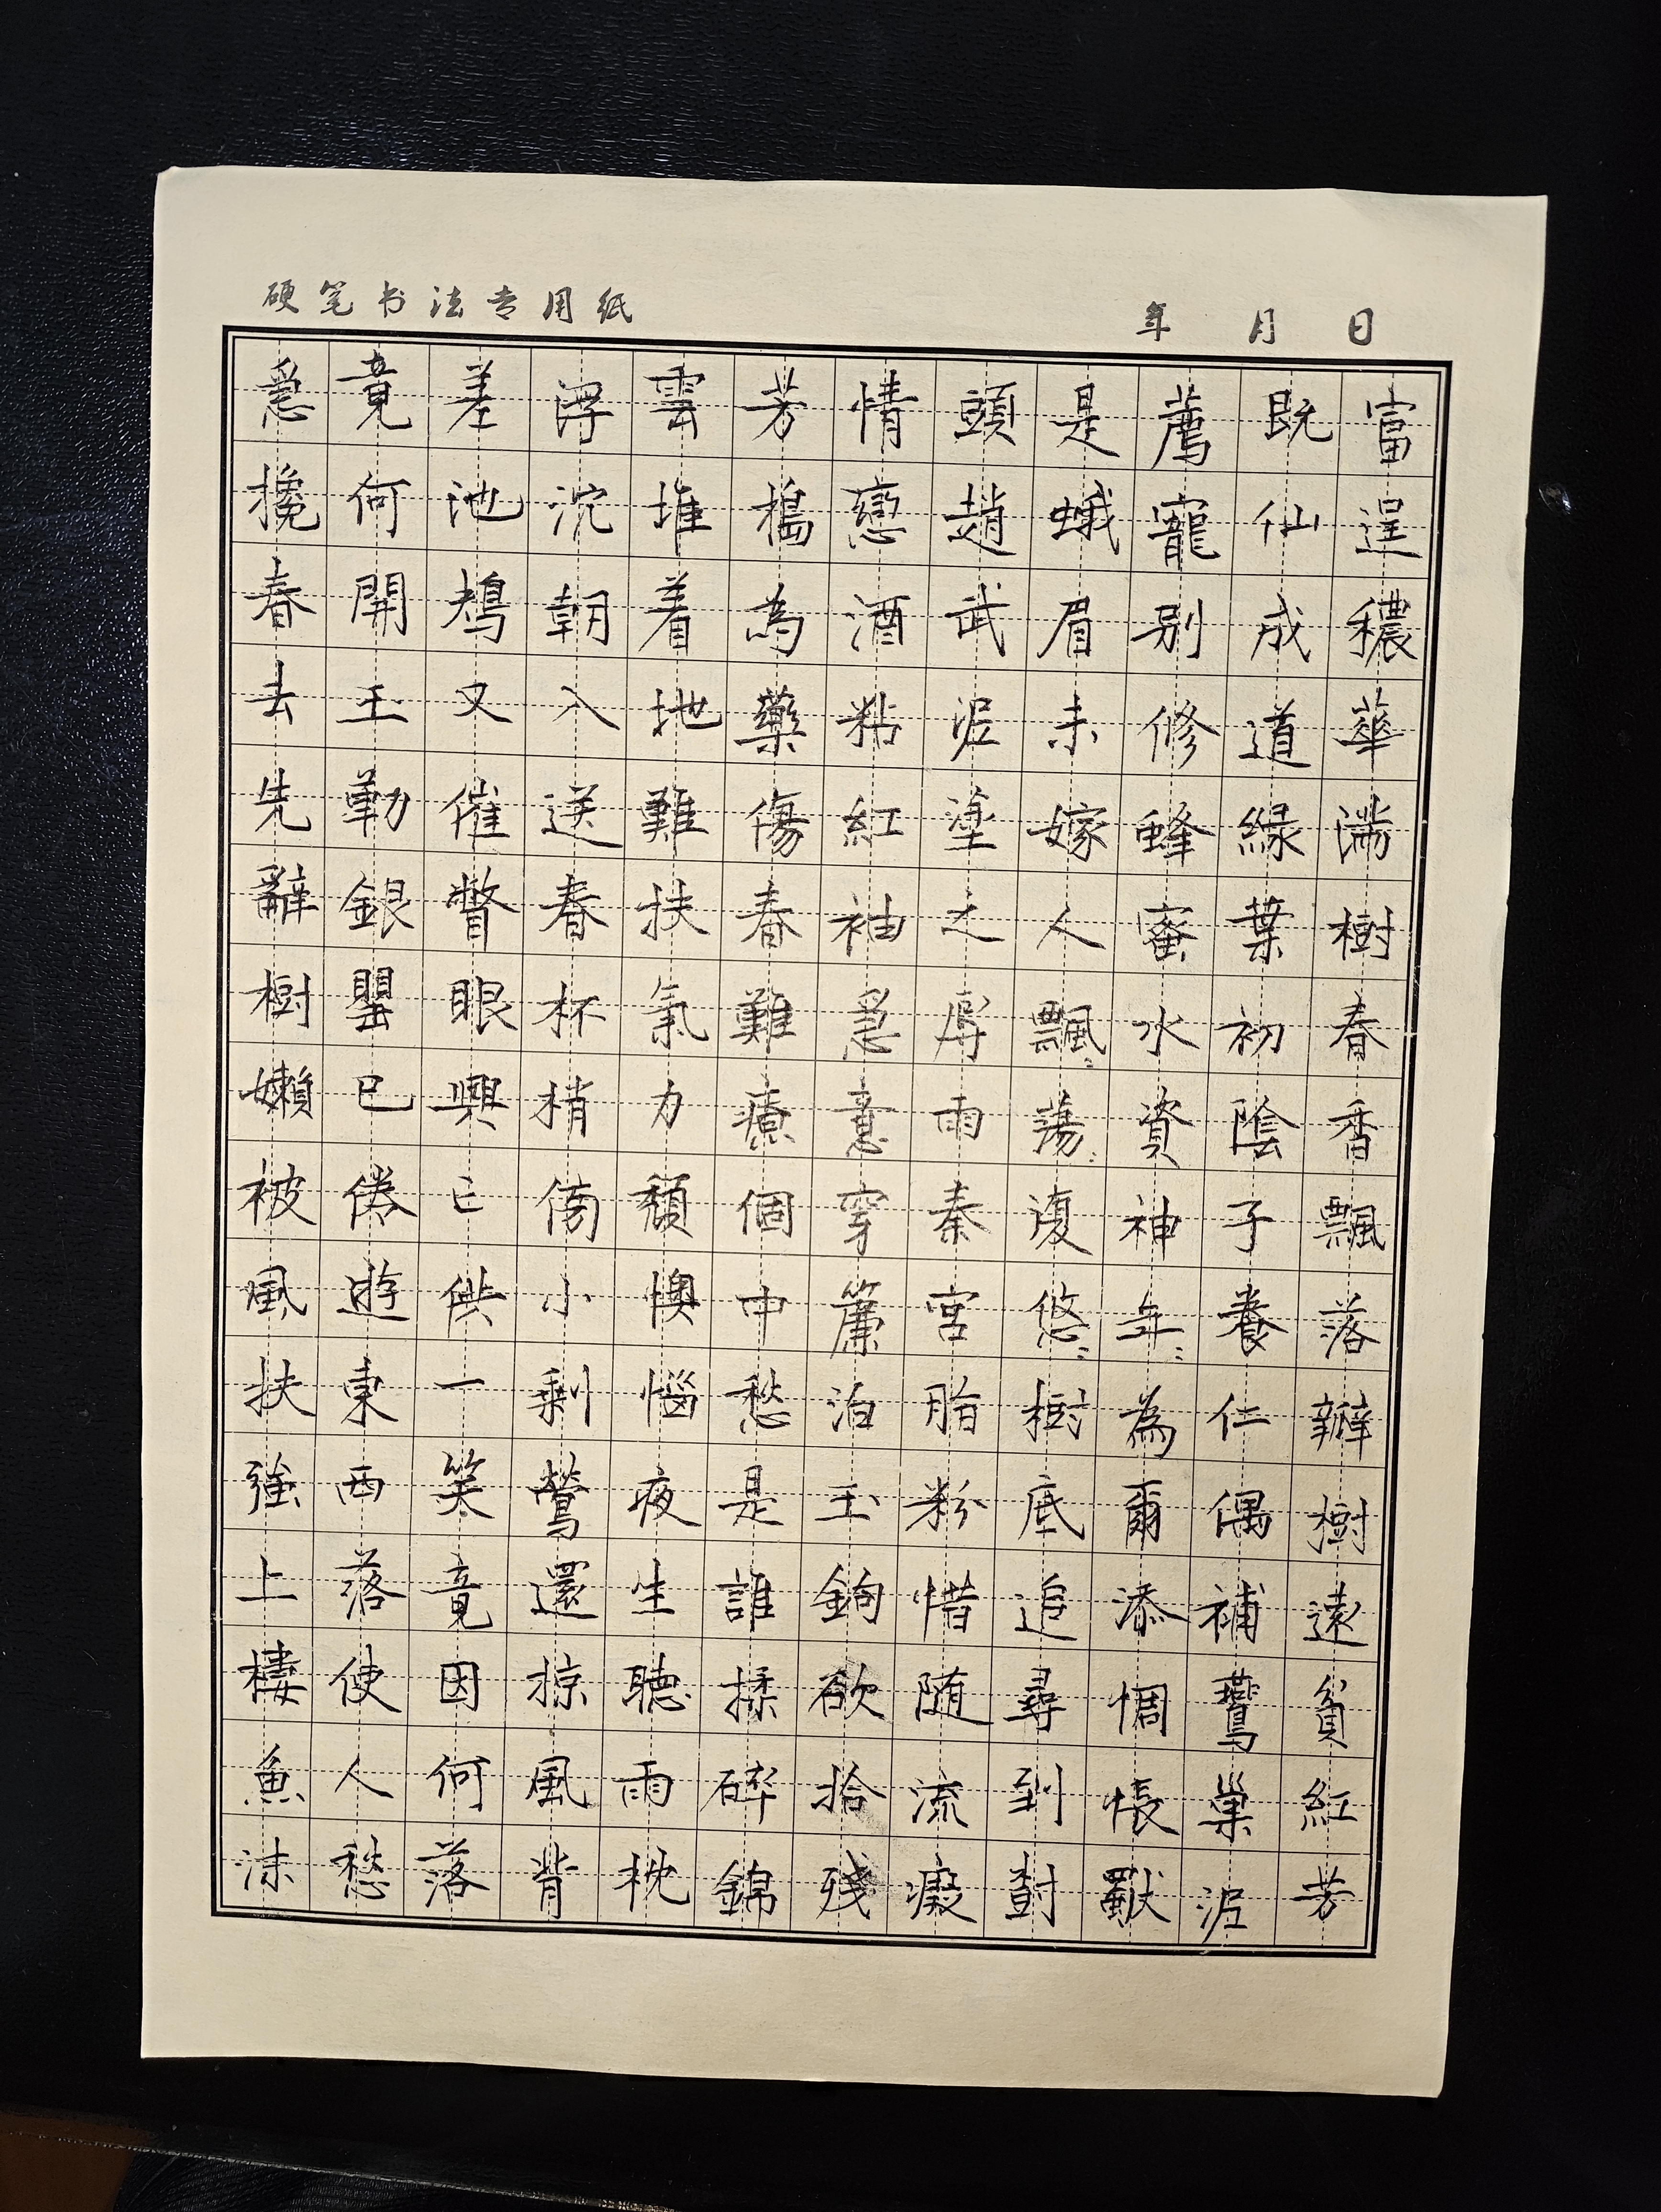 富逞穠華滿樹春香飄落瓣樹還貧紅芳
既仙成道緑葉初陰子養仁偶補鷰巢泥
薦寵别修蜂蜜水資神年〻為爾添惆悵獸
是蛾眉未嫁人飄〻蕩〻復悠〻樹底追尋到尌
頭趙武泥塗之辱雨秦宮脂粉惜随流癡
情戀酒粘紅袖急意穿簾泊玉鉤欲拾殘
芳搗為藥傷春難療個中愁是誰揉碎錦
雲堆着地難扶氣力頹懊惱夜生聽雨枕
浮沉朝入送春杯梢傍小剩鶯還掠風背
差池鴆又催瞥眼興亡供一笑竟因何落
竟何開玉勒銀罌已倦遊東西落使人愁
急攙春去先辭樹嬾被風扶強上樓魚沫
硬笔书法专用纸 年 月 日